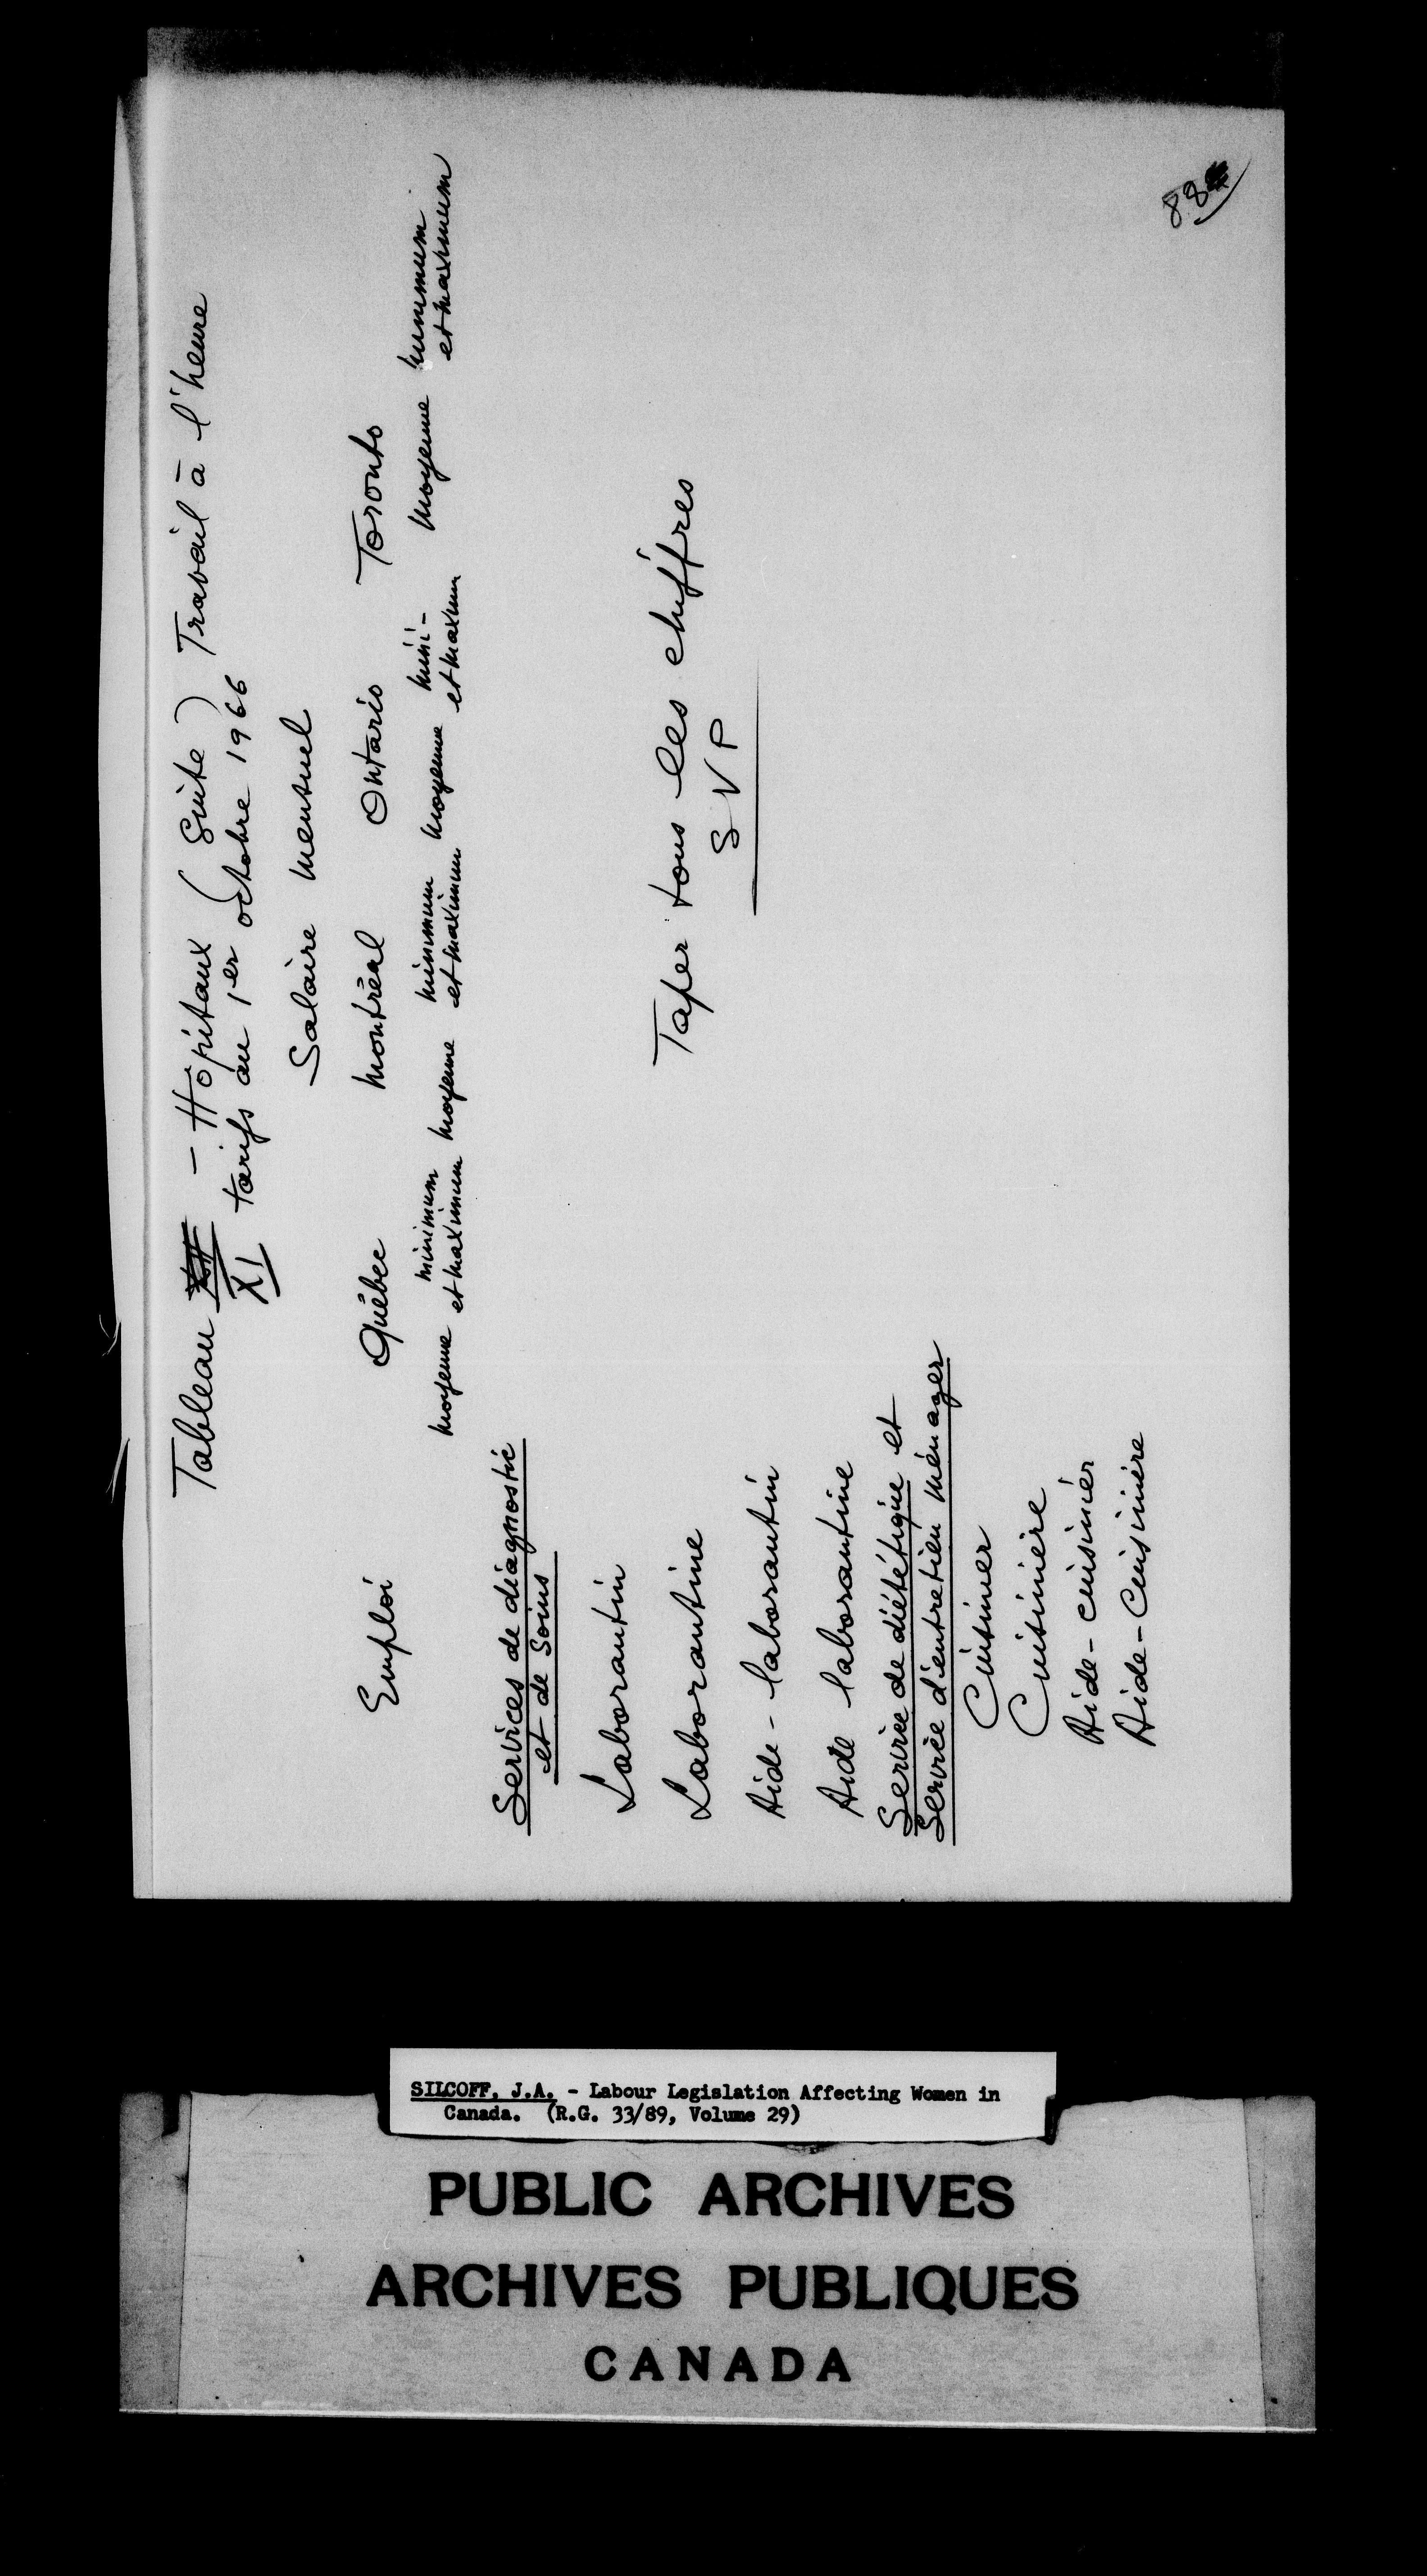 88
Tableau XI - Hôpitaux (Suite) Travail à l'heure
tarifs au 1er octobre 1966
Salaire mensuel
Emploi Québec Montréal Ontario Toronto
minimum minimum mini- minimum
moyenne et maximum moyenne et maximum moyenne et maximum moyenne et maximum
Services de diagnostic
et de soins
Laborantin
Taper tous les chiffres
Laborantine
S V P
Aide-laborantin
Aide laborantine
Service de diététique et
Service d'entretien ménager
Cuisinier
Cuisinière
Aide-cuisinier
Aide-Cuisinière
SILCOFF, J.A. - Labour Legislation Affecting Women in
Canada. (R.G. 33/89, Volume 29)
PUBLIC ARCHIVES
ARCHIVES PUBLIQUES
CANADA